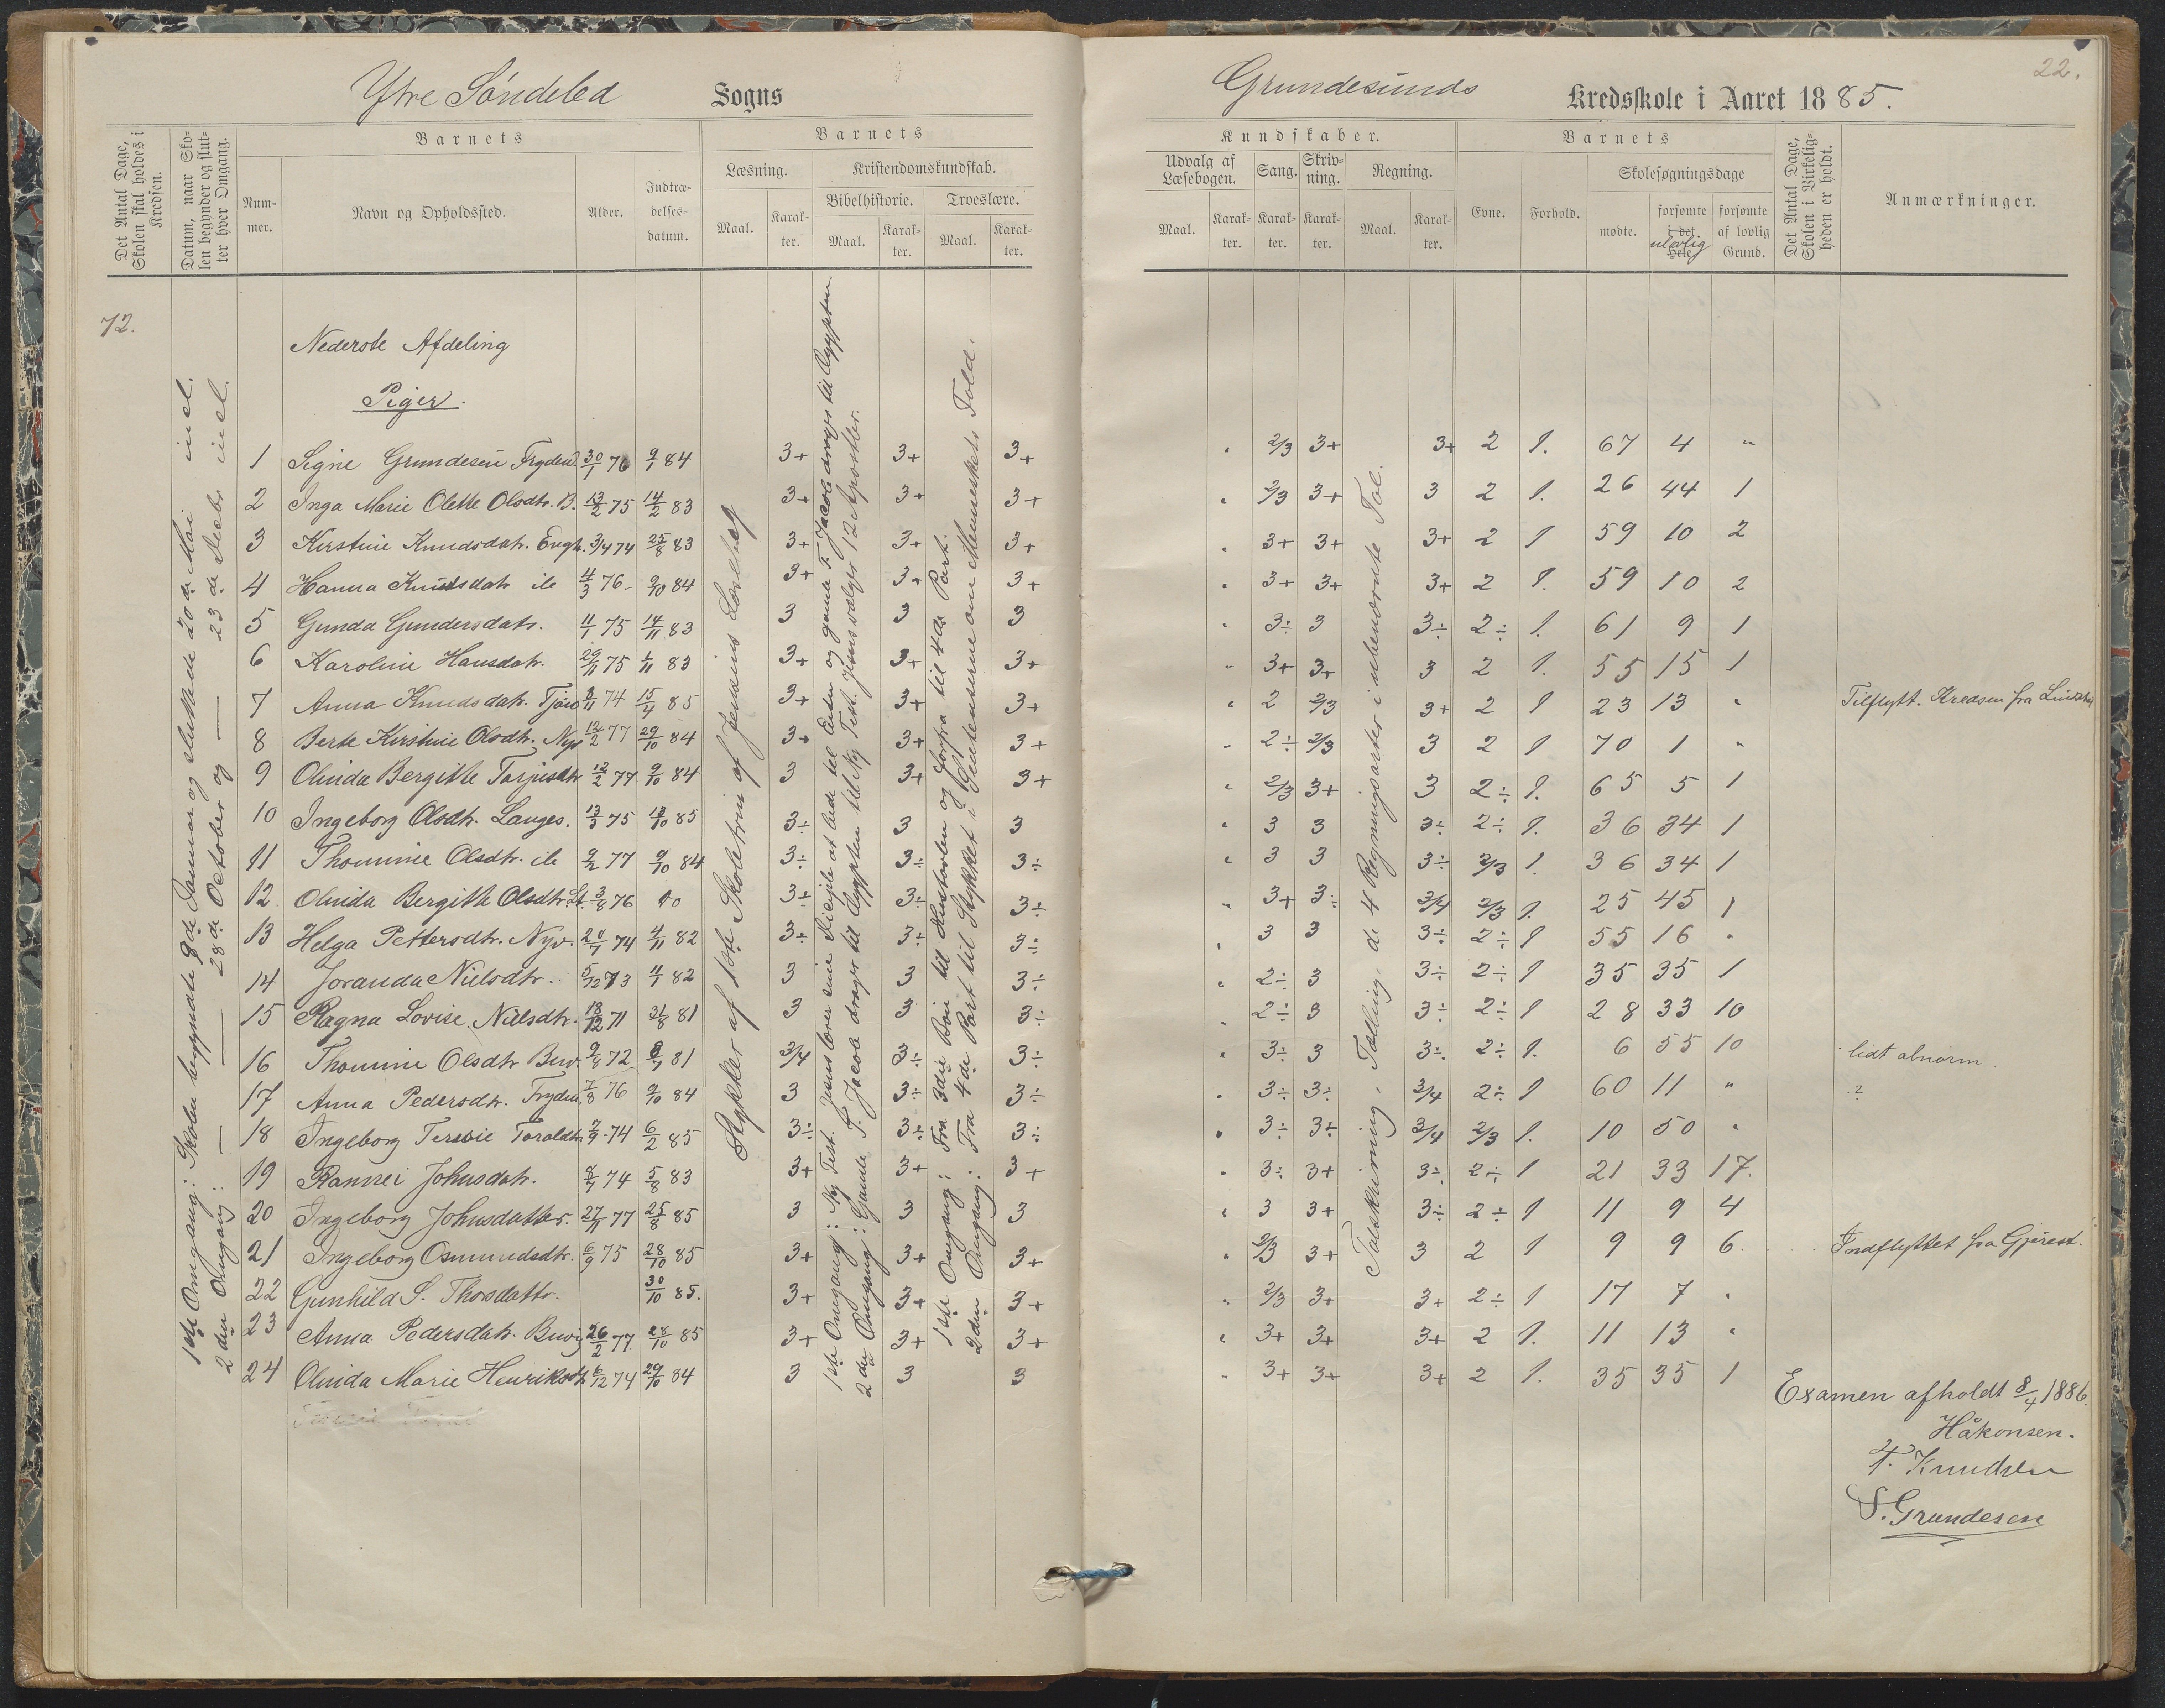 22.
Ytre Søndeled Sogns
Grundesunds Kredsskole i Aaret 1885.
Det Antal Dage, Skolen skal holdes i Kredsen.
Datum, naar Skolen begynder og slutter hver Omgang.
Barnets
Nummer.
Navn og Opholdssted.
Alder.
Indtrædelsesdatum.
Barnets
Læsning.
Maal.
Karakter.
Kristendomskundskab.
Bibelhistorie.
Maal.
Karakter.
Troeslære.
Maal.
Karakter.
Kundskaber.
Udvalg af Læsebogen.
Maal.
Karakter.
Sang.
Karakter.
Skrivning.
Karakter.
Regning.
Maal.
Karakter.
Barnets
Evne.
Forhold.
Skolesøgningsdage
mødte.
forsømte i det Hele
ulovlig
forsømte af lovlig Grund.
Det Antal Dage, Skolen i Virkeligheden er holdt.
Anmærkninger.
72.
1ste Omgang: Skolen begyndte 9de Januar og sluttede 20de Mai incl.
2den Omgang: — — 28de October og — 23de Decbr. incl.
Stykker af 1ste Skoletrin af Jensens Læsebog
1ste Omgang: Ny Test. Jesus lærer sine Disciple at bede til Enden og gamle T. Jacob drager til Ægypten
2den Omgang: Gamle T. Jacob drager til Ægypten til Ny Test. Jesus vælger 12 Apostler.
1ste Omgang: Fra 3die Bøn til Hustavlen og forfra til 4de Part.
2den Omgang: Fra 4de Part til Stykket i Sentenserne om Menneskets Fald.
Talskrivning, Tælling, de 4 Regningsarter i ubenævnte Tal.
Nederste Afdeling
Piger.
1 Signe Grundesen Fryden. 30/1 76 9/1 84 3+ 3+ 3+ " 2/3 3+ 3+ 2 1. 67 4 "
2 Inga Marie Olette Olsdtr. B. 13/2 75 14/2 83 3+ 3+ 3+ " 2/3 3+ 3 2 1. 26 44 1
3 Kirstine Knudsdatr. Engh. 3/4 74 25/8 83 3+ 3+ 3+ " 3+ 3+ 3+ 2 1 59 10 2
4 Hanna Knudsdatr ib 4/3 76 9/10 84 3+ 3+ 3+ " 3+ 3+ 3+ 2 1. 59 10 2
5 Gunda Gundersdatr. 11/1 75 14/11 83 3 3 3 " 3÷ 3 3÷ 2÷ 1. 61 9 1
6 Karoline Hansdatr. 29/11 75 1/11 83 3+ 3+ 3+ " 3+ 3+ 3 2 1. 55 15 1
7 Anna Knudsdatr. 74 15/4 85 3+ 3+ 3+ " 2 2/3 3+ 2 1 23 13 " Tilflytt. Kredsen fra
8 Berte Kirstine Olsdtr. Nyv 12/2 77 29/10 84 3+ 3+ 3+ " 2÷ 2/3 3 2 1 70 1 "
9 Olinda Bergitte Tarjusdtr 12/2 77 9/10 84 3 3+ 3+ " 2/3 3+ 3 2÷ 1. 65 5 1
10 Ingeborg Olsdtr. Langes. 13/3 75 85 3÷ 3 3 " 3 3 3÷ 2÷ 1. 36 34 1
11 Thomine Olsdtr. ib 9/2 77 9/10 84 3÷ 3÷ 3÷ " 3 3 3÷ 2/3 1. 36 34 1
12. Olinda Bergitte Olsdtr. 3/8 76 3÷ 3÷ 3÷ " 3+ 3÷ 3/4 2/3 1. 25 45 1
13 Helga Pettersdtr. Nyv. 74 4/11 82 3÷ 3÷ 3÷ " 3 3 3÷ 2÷ 1 55 16 "
14 Joranda Nielsdtr. 5/12 73 4/1 82 3 3 3÷ " 2÷ 3 3÷ 2÷ 1 35 35 1
15 Ragna Lovise Nielsdtr. 18/12 71 31/8 81 3 3 3÷ " 2÷ 3 3÷ 2÷ 1 28 33 10
16 Thomine Olsdtr Buv. 9/8 72 81 3/4 3÷ 3÷ " 3÷ 3 3÷ 2÷ 1. 6 55 10 lidt abnorm.
17 Anna Pedersdtr. Fryden. 7/8 76 9/10 84 3 3÷ 3÷ " 3÷ 3÷ 3/4 2÷ 1 60 11 " ?
18 Ingeborg Tersvie Toraldtr. 7/9 74 6/2 85 3÷ 3÷ 3÷ " 3÷ 3÷ 3/4 2/3 1. 10 50 "
19 Rannei Johnsdatr. 8/7 74 5/8 83 3+ 3+ 3+ " 3÷ 3+ 3÷ 2÷ 1 21 33 17.
20 Ingeborg Johnsdatter. 27/11 77 25/8 85 3 3 3 " 3 3+ 3÷ 2÷ 1 11 9 4
21 Ingeborg Osmundsdtr. 6/9 75 28/10 85 3+ 3+ 3+ " 2/3 3+ 3 2 1 9 9 6. Indflyttet fra Gjerest.
22 Gunhild S. Thorsdattr. 30/10 85. 3+ 3+ 3+ " 2/3 3+ 3+ 2÷ 1 17 7 "
23 Anna Pedersdatr. Buvig 26/2 77. 28/10 85 3+ 3+ 3+ " 3+ 3+ 3+ 2 1. 11 13 "
24 Olinda Marie Henriksdtr 6/12 74 29/10 84 3 3 3 " 3+ 3+ 3+ 2 1. 35 35 1
Examen afholdt 8/4 1886.
Håkonsen.
T. Knudsen
S. Grundesen